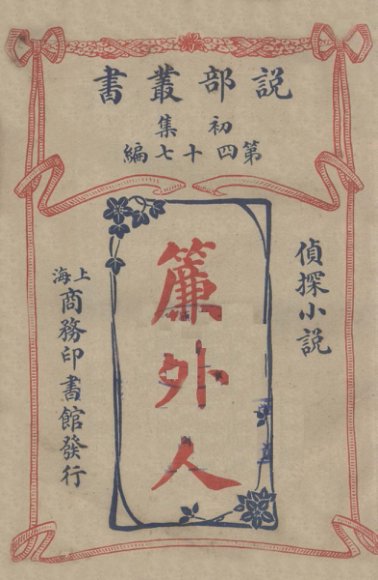 説部叢書
初集
第四十七編
偵探小説
簾外人
上海
商務印書館發行